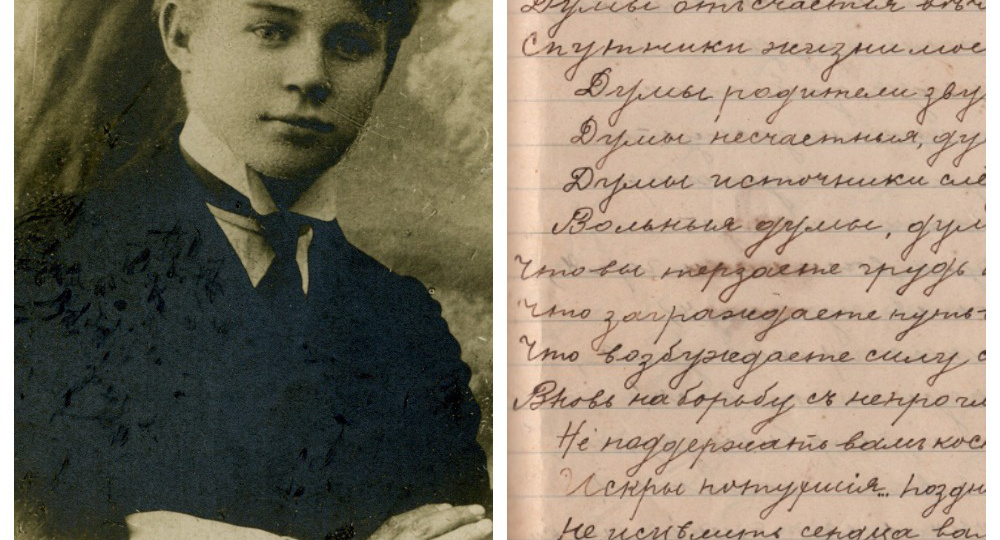 Думы отъ счастья
Спутники жизни мое
Думы родители зву
Думы несчастныя, ду
Думы источники слё
Вольныя думы, дум
Что вы терзаете грудь
Что заграждаете путь
Что возбуждаете силу с
Вновь на борьбу съ непрогл
Не поддержать вамъ кос
Искры потухшія... Поздн
Не исцѣлить сердца